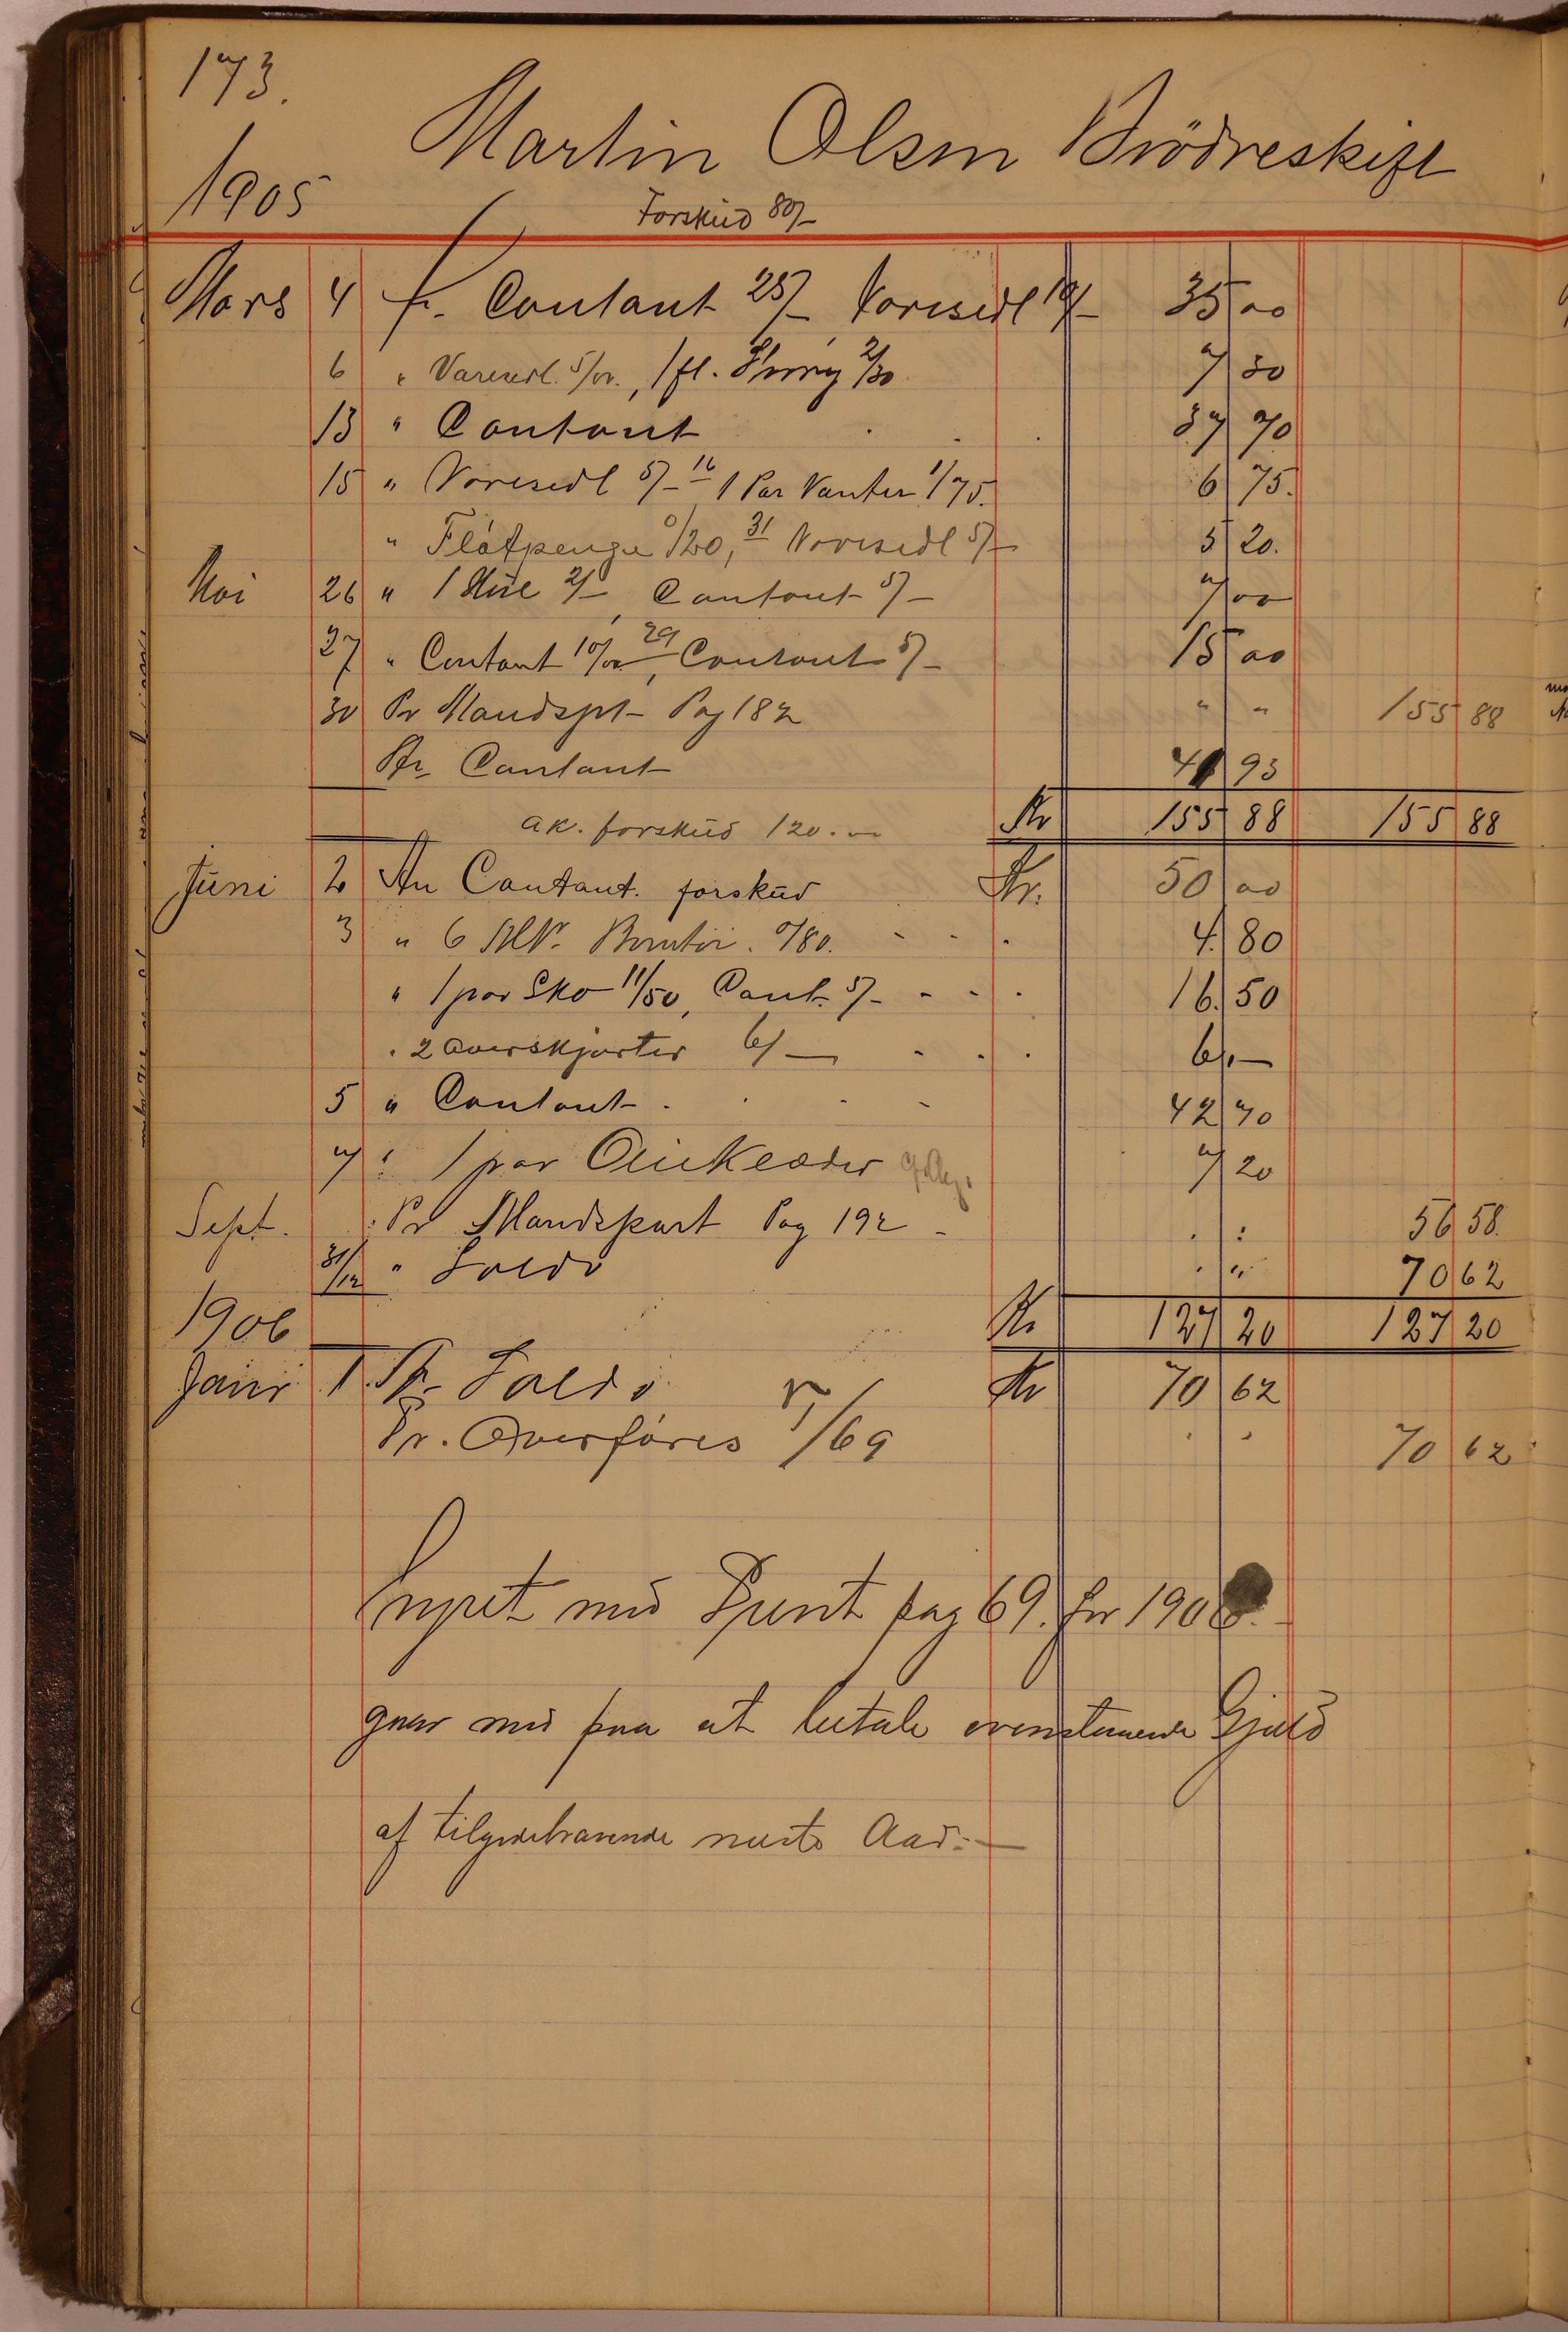 173.
Martin Olsen Brödreskift
1905
Forskud 80/-
Mars 4 Contant 25/- Varesedl 10/- 35 00
6 " Varesedl. 5/00., 1 fl. 2/30 7 30
13 " Contant 37 70
15 " Varesedl 5/- 16 1 Par Vanter 1/75. 6 75.
" Flötpenge 0/20, 31 Varesedl 5/- 5 20.
Mai 26 " 1 Hue 2/-, Contant 5/- 7 00
27 " Contant 10/00 29, Contant 5/- 15 00
30 Pr Mandspt Pag 182 " " 155 88
An Contant 41 93
Kr 155 88 155 88
ak. forskud 120.—
Juni 2 An Contant. forskud Kr. 50 00
3 " 6 0/80. 4. 80
" 1 par Sko 11/50, Cont. 5/- 16. 50
" 2 Overskjorter 6/— 6.—
5 " Contant 42 70
7 " 1 par Olieklæder 7 20
Sept. Pr Mandspart Pag 192 56 58.
31/12 " Saldo " 70 62
1906 Kr 127 20 127 20
Janr 1. Saldo Kr 70 62
Pr. Overföres 5/69 70 62
med pag 69. for 1906.
gaar med paa at betale ovenstaaende Gjæld
af tilgodehavende næste Aar.—